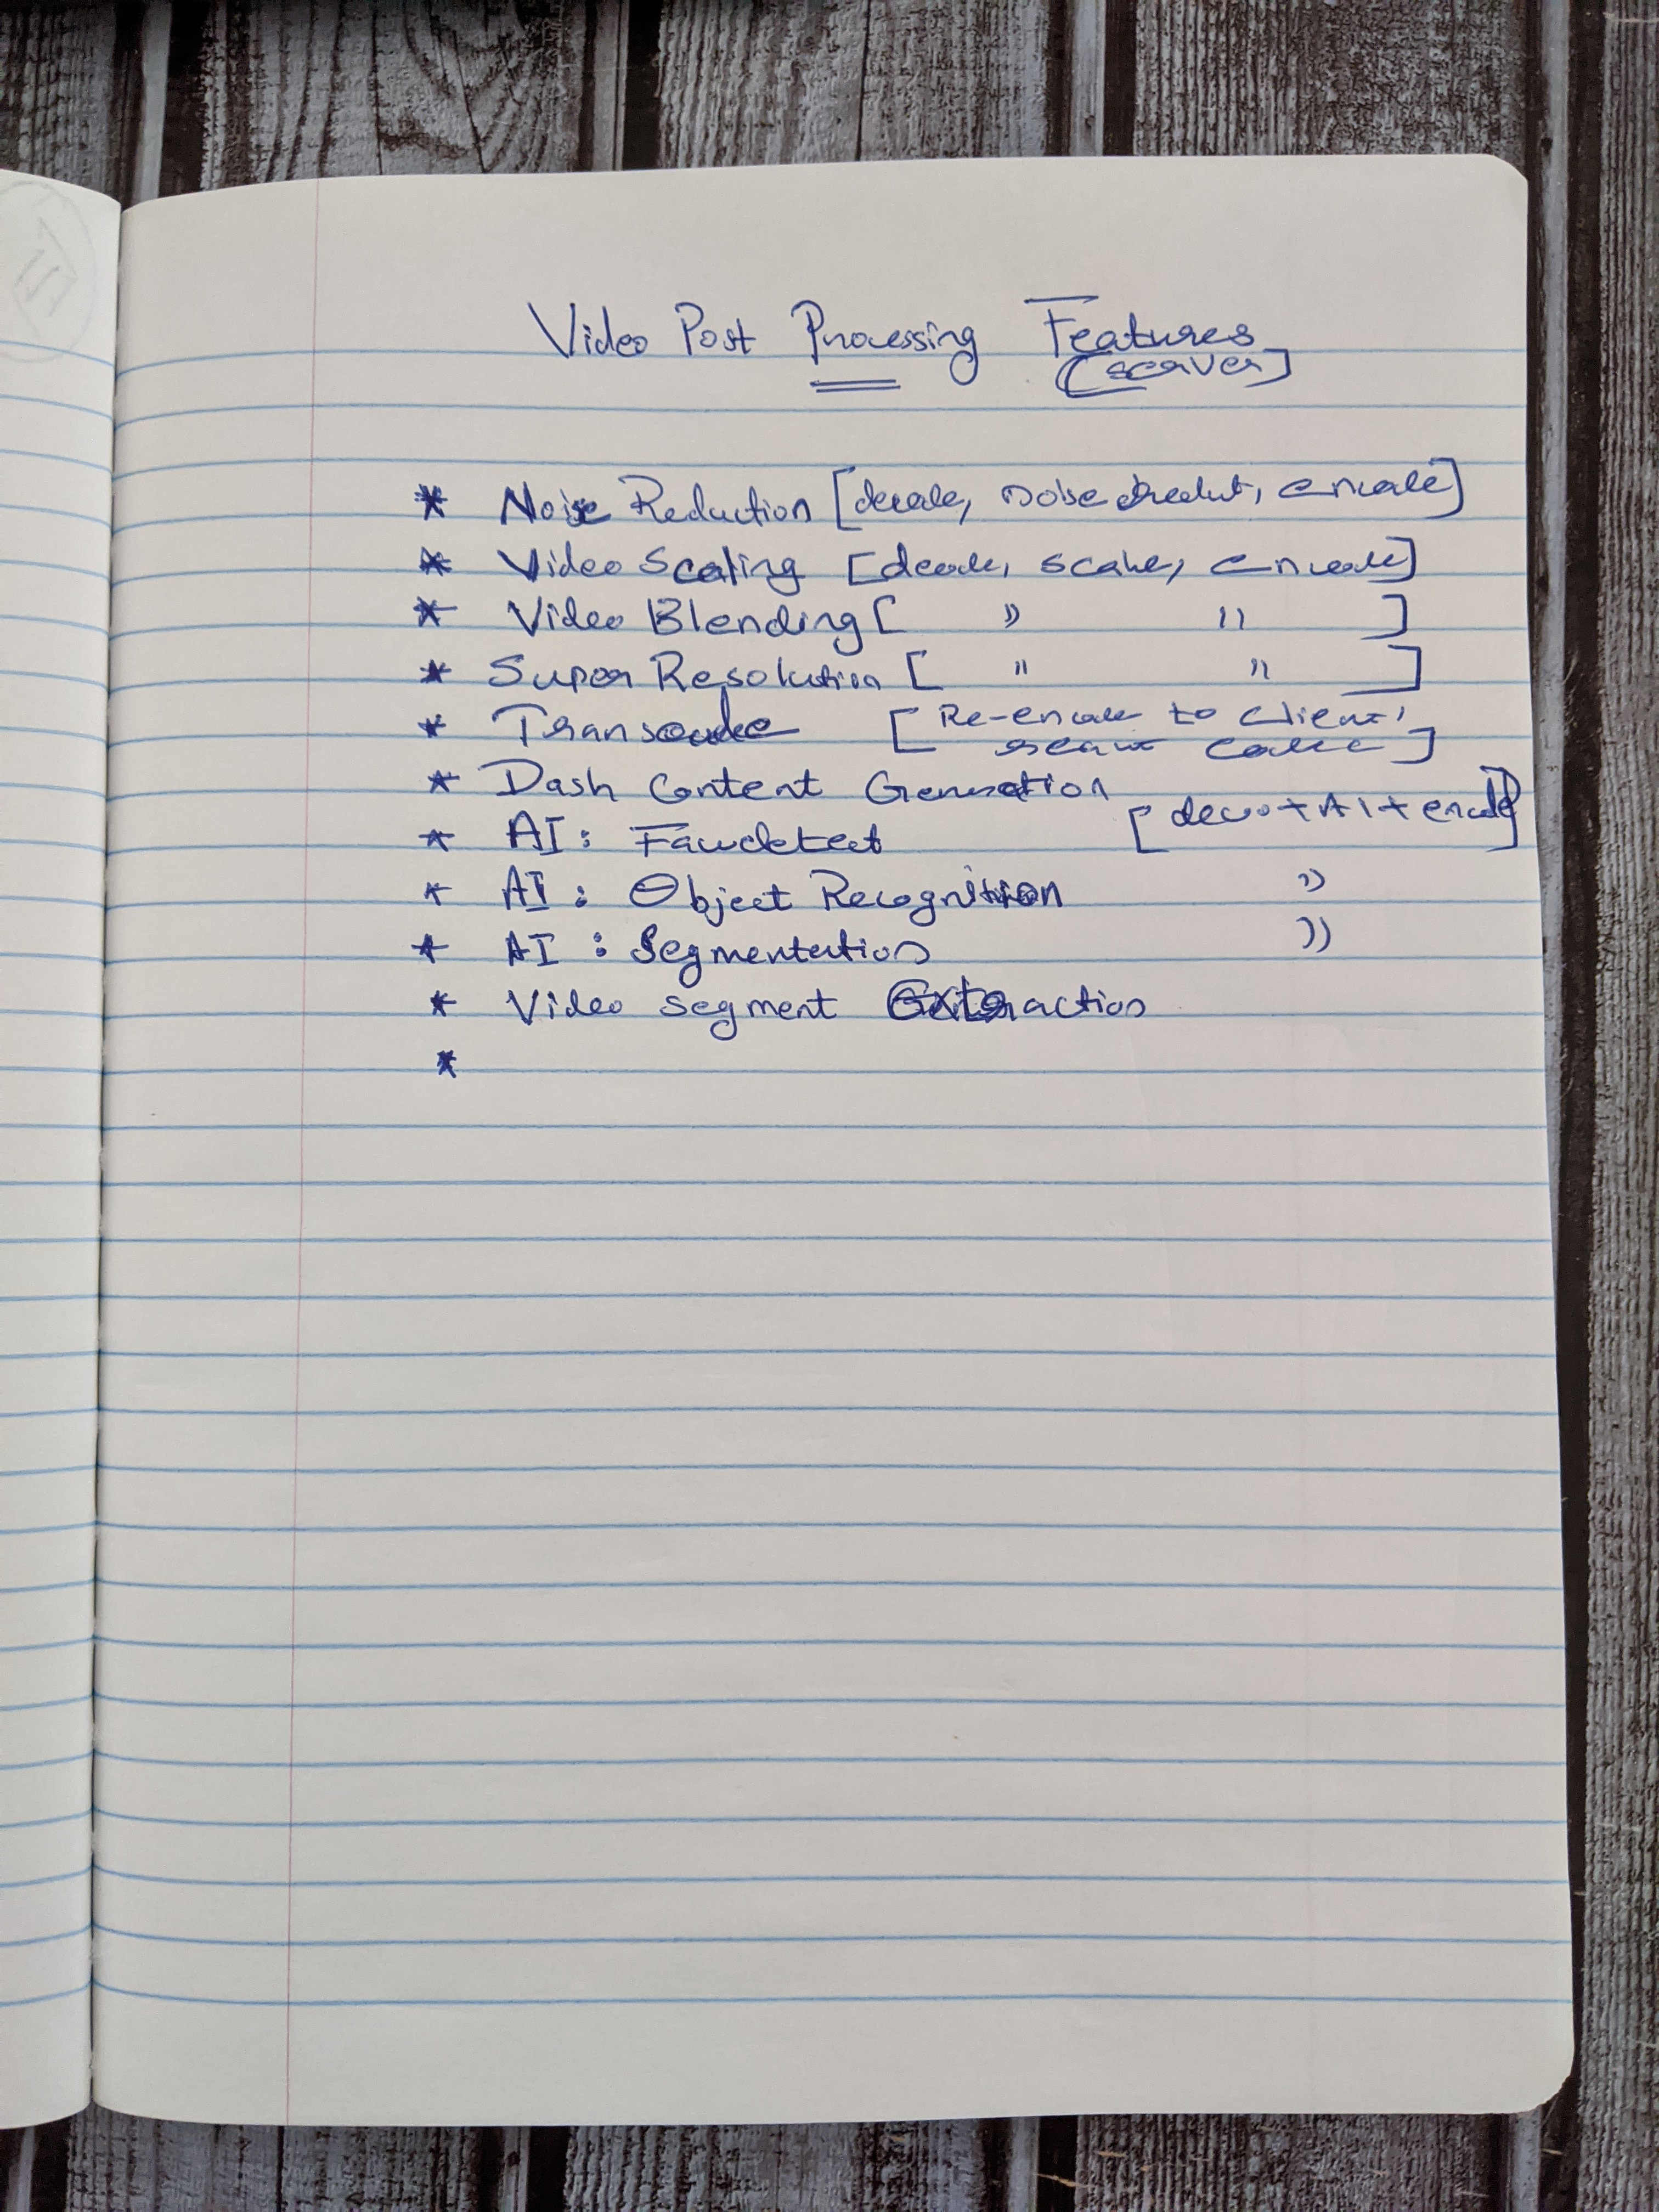 Video Post Processing Features
[server]
* Noise Reduction [decode, noise reduct, encode]
* Video Scaling [decode, scale, encode]
* Video Blending [ " " ]
* Super Resolution [ " " ]
* Transcode [Re-encode to client
codec]
* Dash Content Generation
* AI: Facedetect [deco + AI + encode]
* AI: Object Recognition "
* AI: Segmentation "
* Video segment Extraction
*